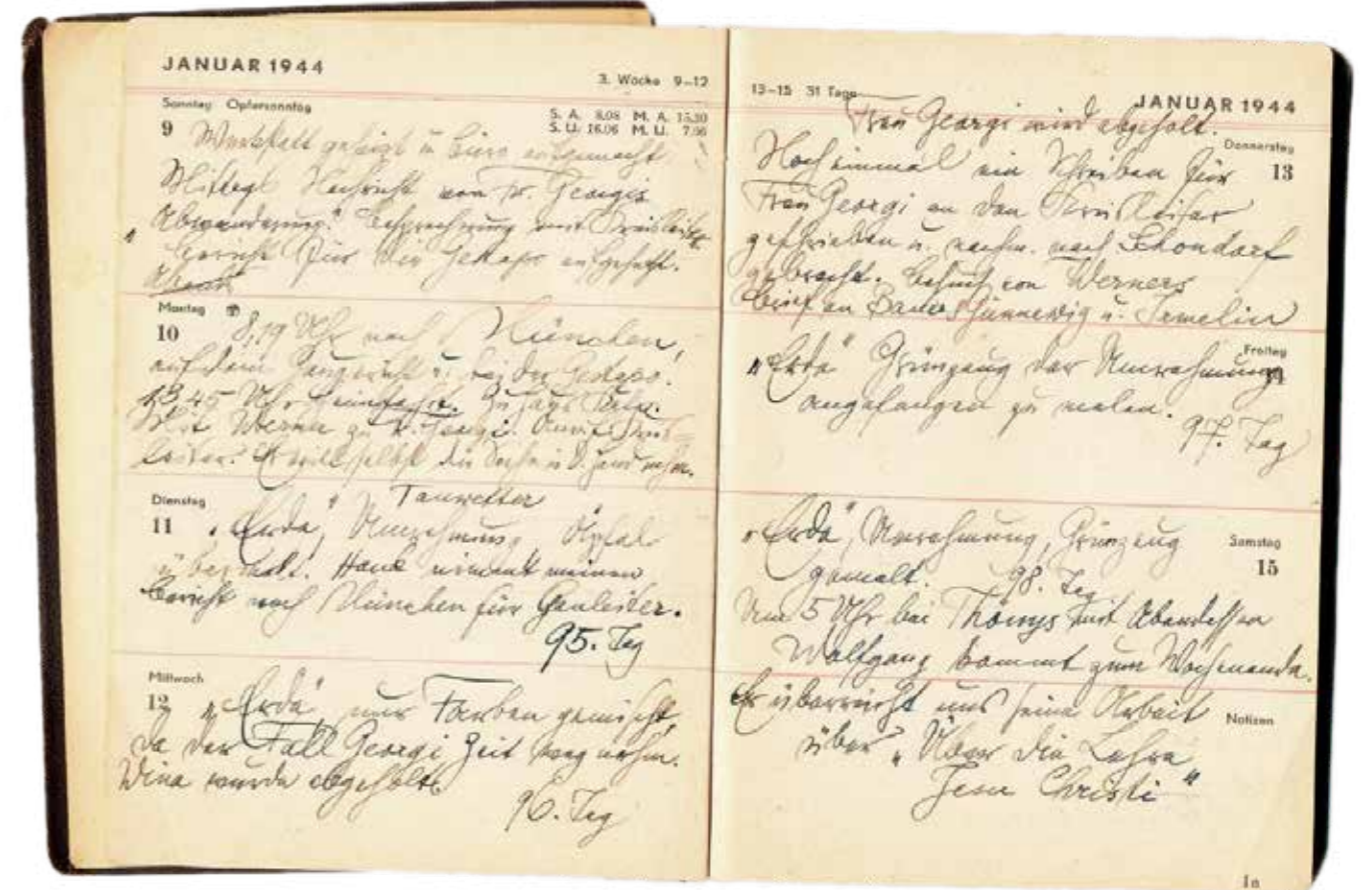 JANUAR 1944
3. Woche 9–12
Sonntag Opfersonntag
S. A. 8.08 M. A. 15.30
S. U. 16.06 M. U. 7.56
9 Werkstatt geheizt u. Büro aufgemacht
Mittags Nachricht von Fr. Georgis
"Abwanderung". Besprechung mit Kreisleiter
Bericht für die Gestapo aufgesetzt.
Abends
Montag
10 8,19 Uhr nach München,
auf dem u. bei der Gestapo.
13.45 Uhr Heimfahrt. Zu Haus
Mit Werner zu Fr. Georgi. Anruf Kreis-
leiter. Er will selbst die Sache in d. Hand nehm.
Dienstag
Tauwetter
11 "Erda", Umrahmung, Äpfel
übermalt. Hans nimmt meinen
Bericht nach München für Gauleiter.
95. Tag
Mittwoch
12 "Erda", nur Farben gemischt,
da der Fall Georgi Zeit weg nahm.
Wina wurde abgeholt.
96. Tag
13–15 31 Tage
JANUAR 1944
Frau Georgi wird abgeholt.
Donnerstag
13
Noch einmal ein Schreiben für
Frau Georgi an den Kreisleiter
geschrieben u. nachm. nach Schondorf
gebracht. Besuch von Werners
Brief an u. Irmelin
Freitag
14
"Erda" Grünzeug der Umrahmung
angefangen zu malen.
97. Tag
Samstag
15
"Erda", Umrahmung, Grünzeug
gemalt. 98. Tag
Um 5 Uhr bei Thönys mit Abendessen
Wolfgang kommt zum Wochenende.
Notizen
Er überreicht uns seine Arbeit
über "Über die Lehre
Jesu Christi"